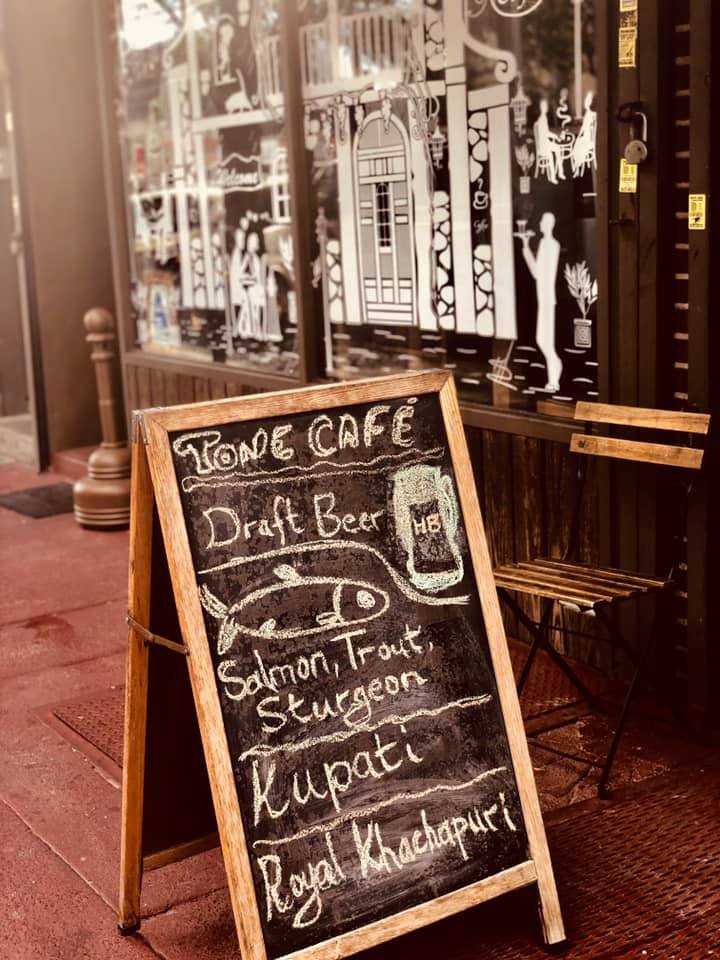 Welcome
Coffee
TONE CAFÉ
Draft Beer
HB
Salmon, Trout,
Sturgeon
Kupati
Royal Khachapuri